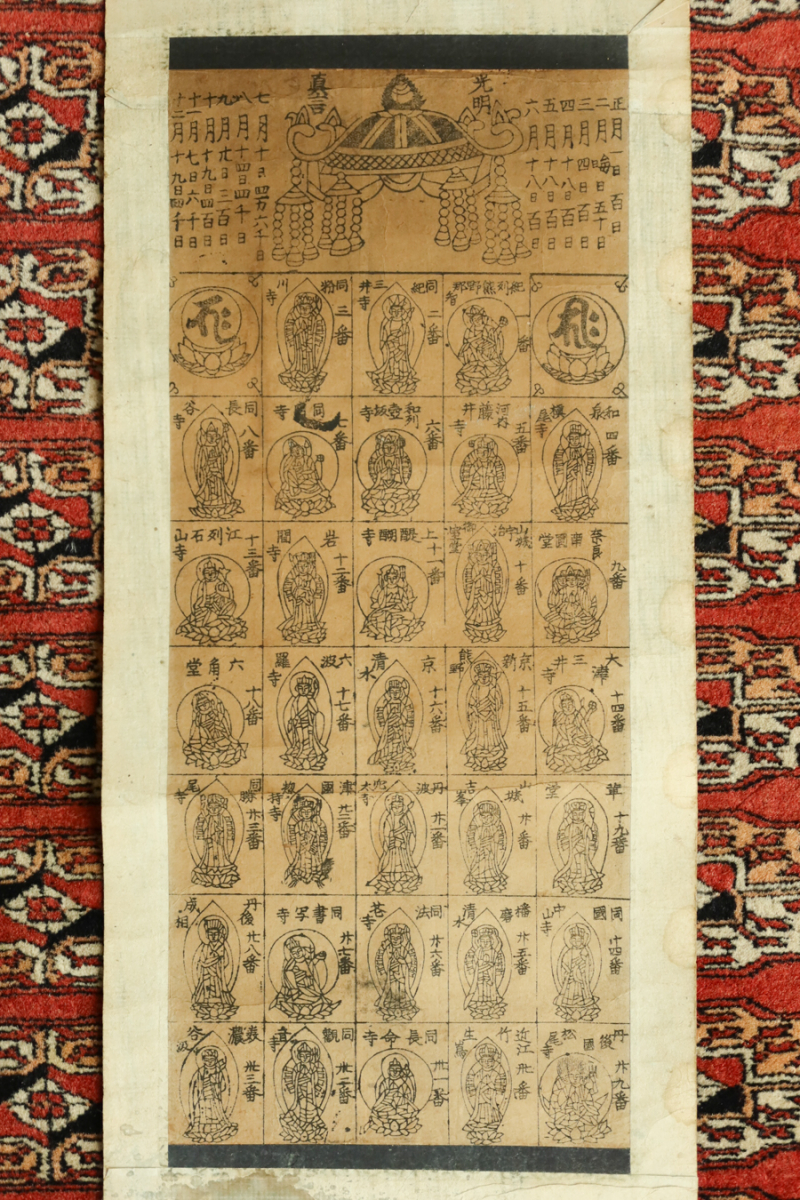 正月一日百日
二月晦日五十日
三月四日百日
四月十八日百日
五月十八日百日
六月十八日百日
光明
真言
七月十日四万六千日
八月十四日四千日
九月廿日二百日
十月十九日四百日
十一月七日六千日
十二月十九日四千日
紀刕熊野那智 一番
同紀三井寺 二番
同粉川寺 三番
和泉槙尾寺 四番
河内藤井寺 五番
和刕壺坂寺 六番
同 寺 七番
同長谷寺 八番
奈良南圓堂 九番
山城宇治御室堂 十番
上醍醐寺 十一番
岩間寺 十二番
江刕石山寺 十三番
大津三井寺 十四番
京新熊野 十五番
京清水 十六番
六波羅寺 十七番
六角堂 十八番
革堂 十九番
山城吉峯 廿番
丹波 廿一番
津国惣持寺 廿二番
同勝尾寺 廿三番
同國中山寺 廿四番
播磨清水 廿五番
同法花寺 廿六番
同書写寺 廿七番
丹後成相 廿八番
丹後國松尾寺 廿九番
近江竹生嶌 卅番
同長命寺 卅一番
同觀音寺 卅二番
美濃谷汲 卅三番